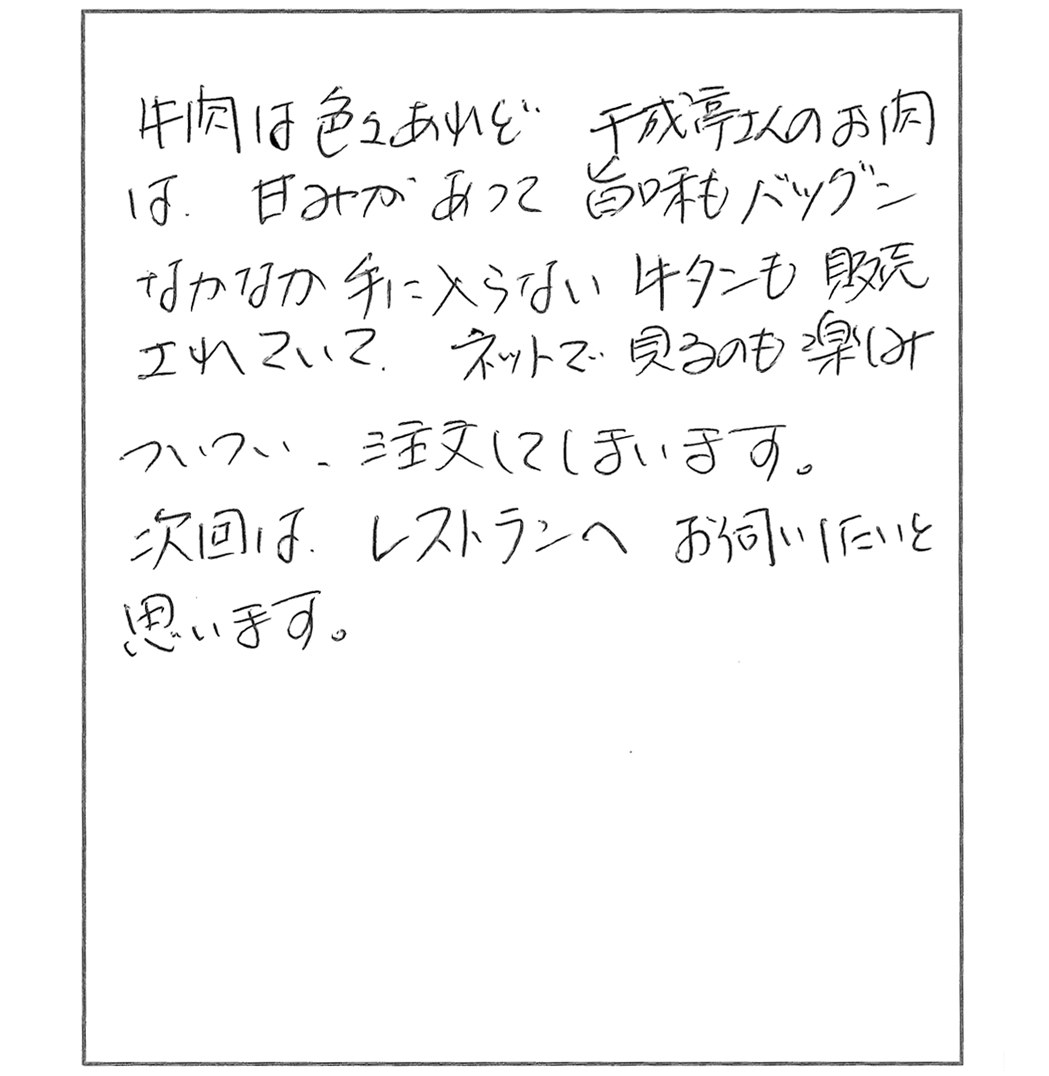 牛肉は色々あれど 千成亭さんのお肉
は、甘みがあって 旨味もバツグン
なかなか手に入らない 牛タンも 販売
されていて、ネットで 見るのも楽しみ
ついつい、注文してしまいます。
次回は、レストランへ お伺いしたいと
思います。